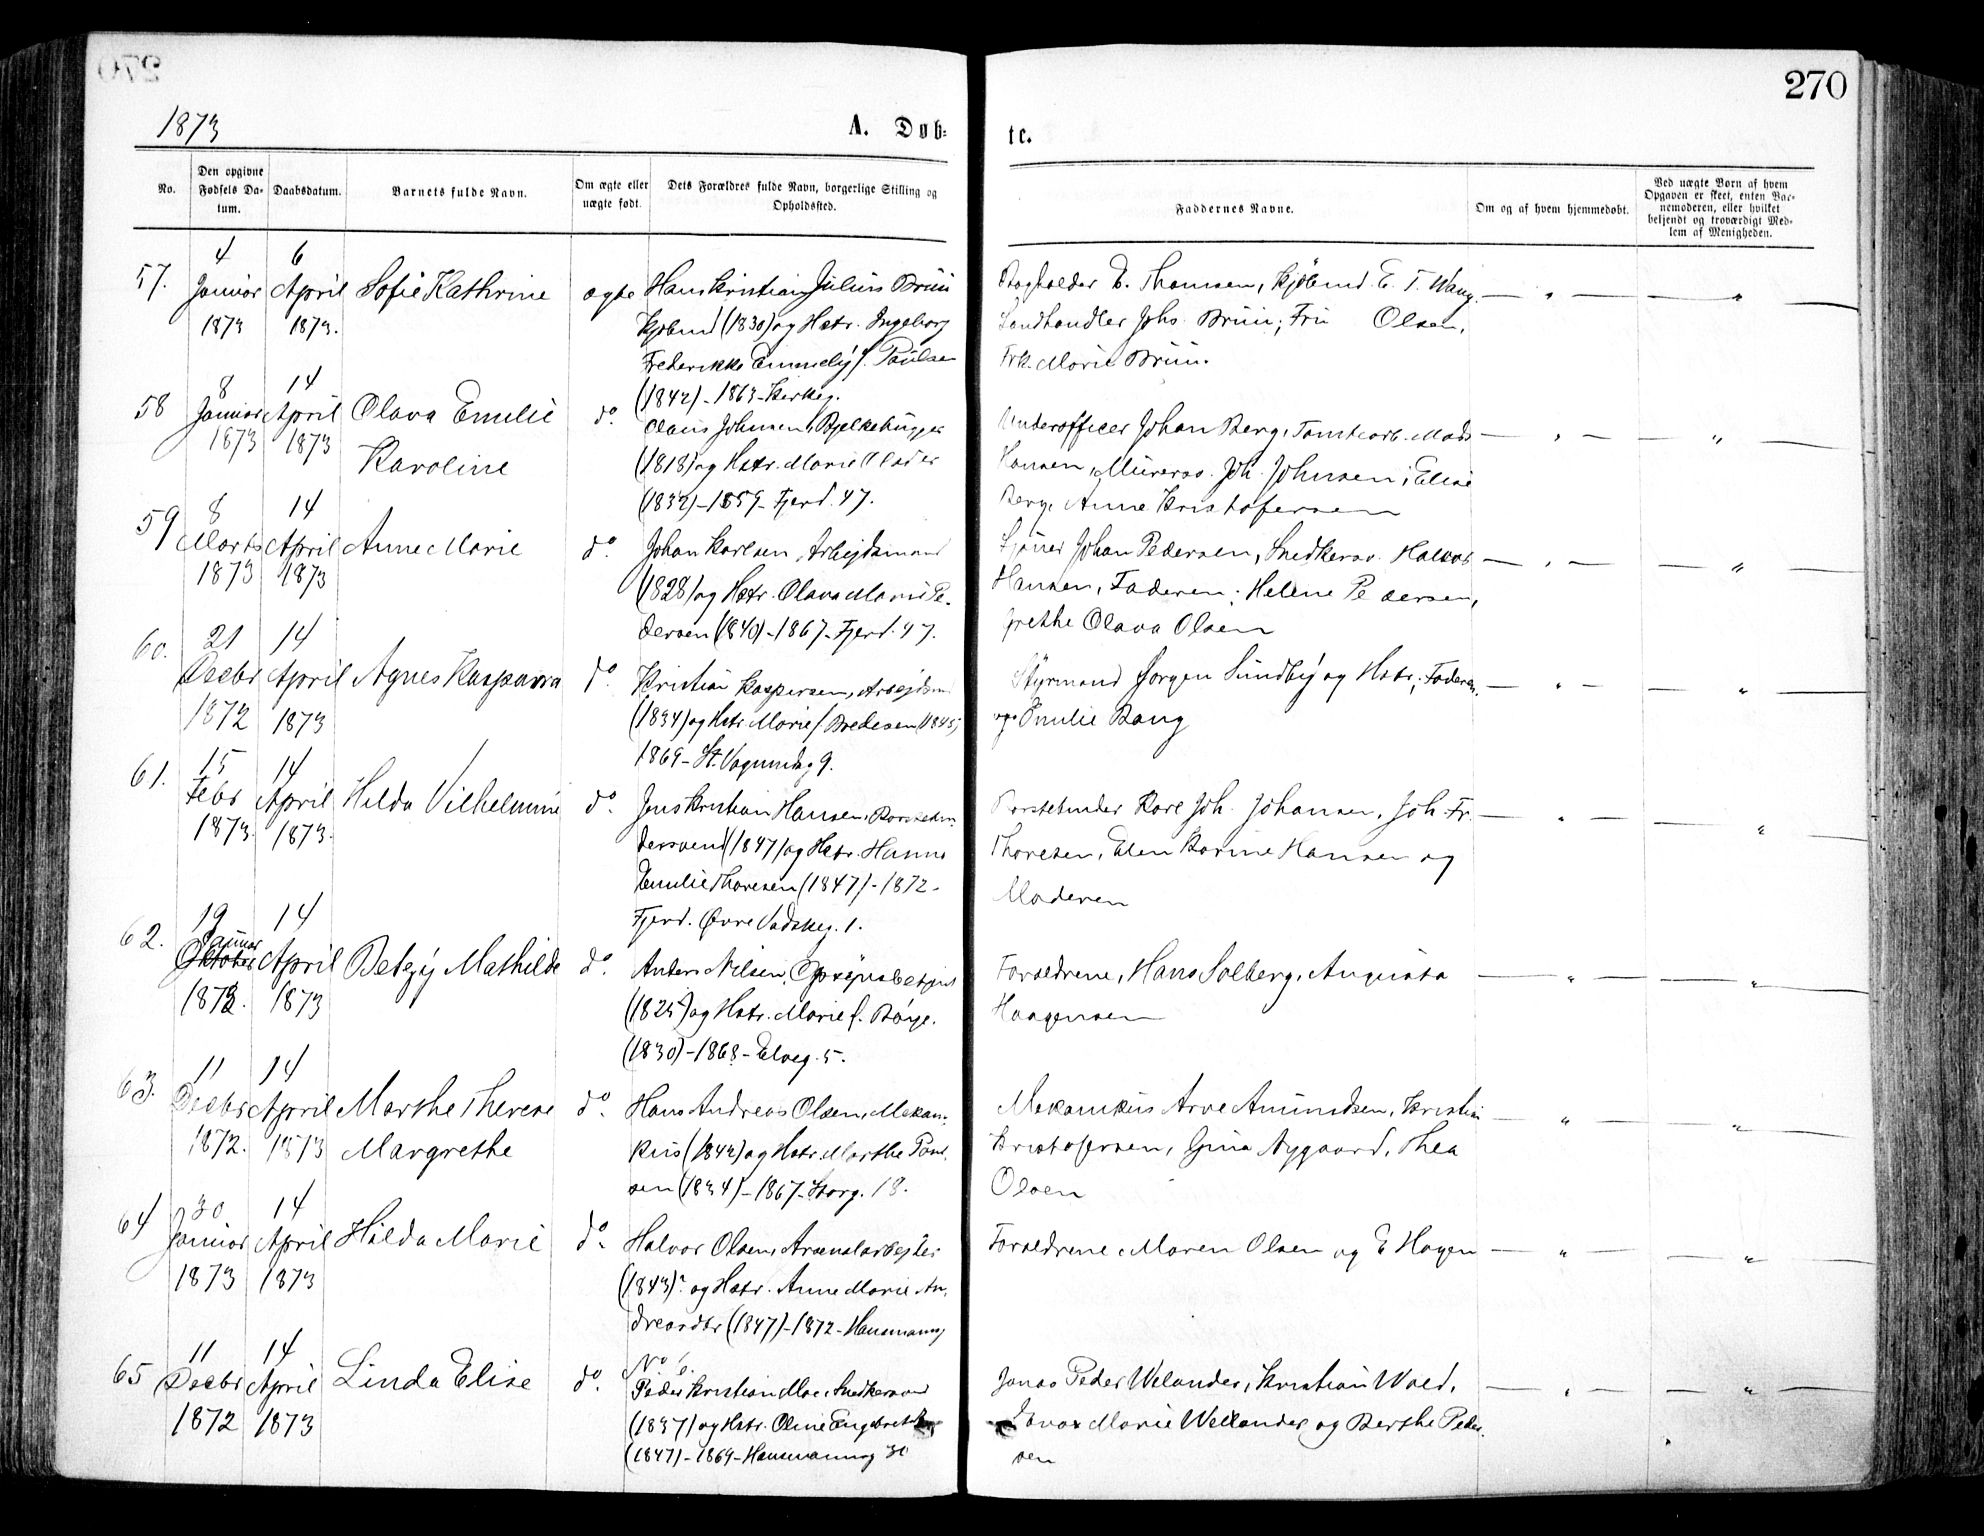 270
1873
A. Døb-
te.
No.
Den opgivne Fødsels Datum.
Daabsdatum.
Barnets fulde Navn.
Om ægte eller uægte født.
Dets Forældres fulde Navn, borgerlige Stilling og Opholdssted.
Faddernes Navne.
Om og af hvem hjemmedøbt.
Ved uægte Børn af hvem Opgaven er skeet, enten Barnemoderen, eller hvilket beljendt og troværdigt Medlem af Menigheden.
57.
4 Januar 1873
6 April 1873.
Sofie Kathrine
ægte
Hans Kristian Julius Bruun
Kjøbmd (1830) og Hstr. Ingeborg
Frederikke Emmely f. Paulsen
(1842) - 1863 - Kirkeg.
Bogholder E. Thomsen, Kjøbmd. E. T. Wang.
Landhandler Johs. Bruun; Fru Olsen,
Frk. Marie Bruun.
58
8 Januar 1873
14 April 1873
Olava Emilie
Karoline
do.
Olaus Johnsen, Bjelkehugger
(1818) og Hstr. Marie
(1832) - 1859 - Fjerd. 47.
Underofficer Johan Berg, Tomtearb. Mads
Hansen, Murersv. Joh. Johnsen; Elise
Berg, Anne Kristofersen
59
8 Marts 1873
14 April 1873
Anne Marie
do.
Johan Karlsen, Arbejdsmand
(1828) og Hstr. Olava Marie Pe-
dersen (1840) - 1867 - Fjerd. 47.
Johan Pedersen, Snedkersv. Halvor
Hansen, Faderen; Helene Pedersen,
Grethe Olava Olsen
60.
21 Decbr 1872
14 April 1873
Agnes Kasparra
do.
Kristian Kaspersen, Arbejdsm
(1834) og Hstr Marie f. Bredesen (1845)
1869 - St. Vognmdsg 9.
Styrmand Jørgen Sundby og Hstr; Faderen,
og Emilie Bang
61.
15 Febr 1873.
14 April 1873.
Hilda Vilhelmine
do.
Jens Kristian Hansen, Børstebin-
dersvend (1847) og Hstr. Hanna
Emilie Thoresen (1847) - 1872 -
Fjerd. Øvre Vadskeg. 1.
Børstebinder Karl Joh. Johansen, Joh. Fr.
Thoresen, Elen Karine Hansen og
Moderen
62.
19 Januar Oktober 1873.
14 April 1873
Betzy Mathilde
do.
Anders Nilsen, Opsynsbetjent
(1825) og Hstr. Marie f. Børge.
(1830) - 1868 - Elveg. 5.
Forældrene, Hans Solberg, Augusta
Haagensen
63.
11 Decbr 1872.
14 April 1873
Marthe Therese
Margrethe
do.
Hans Andreas Olsen, Mekan-
kus (1842) og Hstr. Marthe Paul-
sen (1834) - 1867 - Storg. 18.
Mekanikus Arve Amundsen, Kristian
Kristofersen, Gina Nygaard, Thea
Olsen
64
30 Januar 1873
14 April 1873
Hilda Marie
do.
Halvor Olsen, Arsenalarbejder
(1843) og Hstr. Anne Marie An-
dreasdtr (1847) - 1872 - Hausmannsg
No 6.
Forældrene, Maren Olsen og E Hagen
65
11 Decbr 1872
14 April 1873
Linda Elise
do.
Peder Kristian Moe, Snedkersvend
(1837) og Hstr. Oline Engebretsen
(1847) - 1869 - Hausmannsg 30
Jonas Peder Welander, Kristian Wold,
Marie Wellander og Berthe Peder-
sen